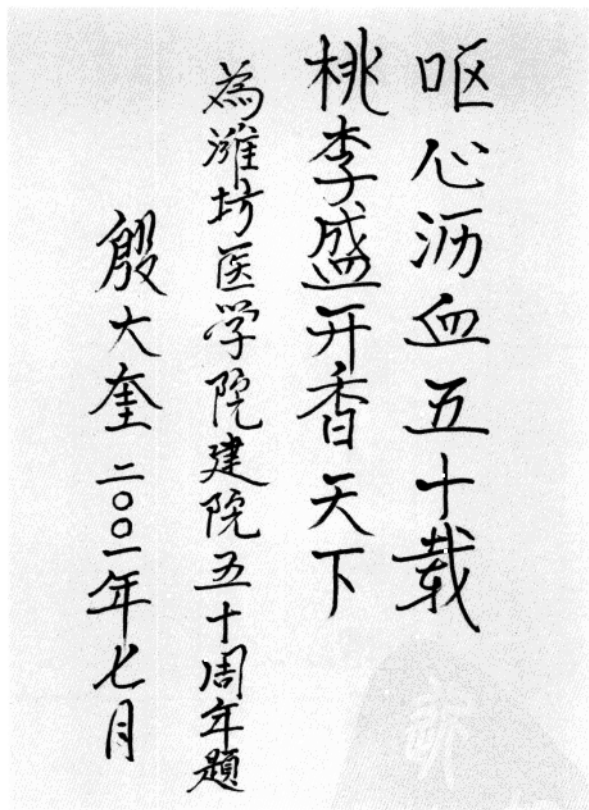 呕心沥血五十载
桃李盛开香天下
為潍坊医学院建院五十周年题
殷大奎 二〇〇一年七月